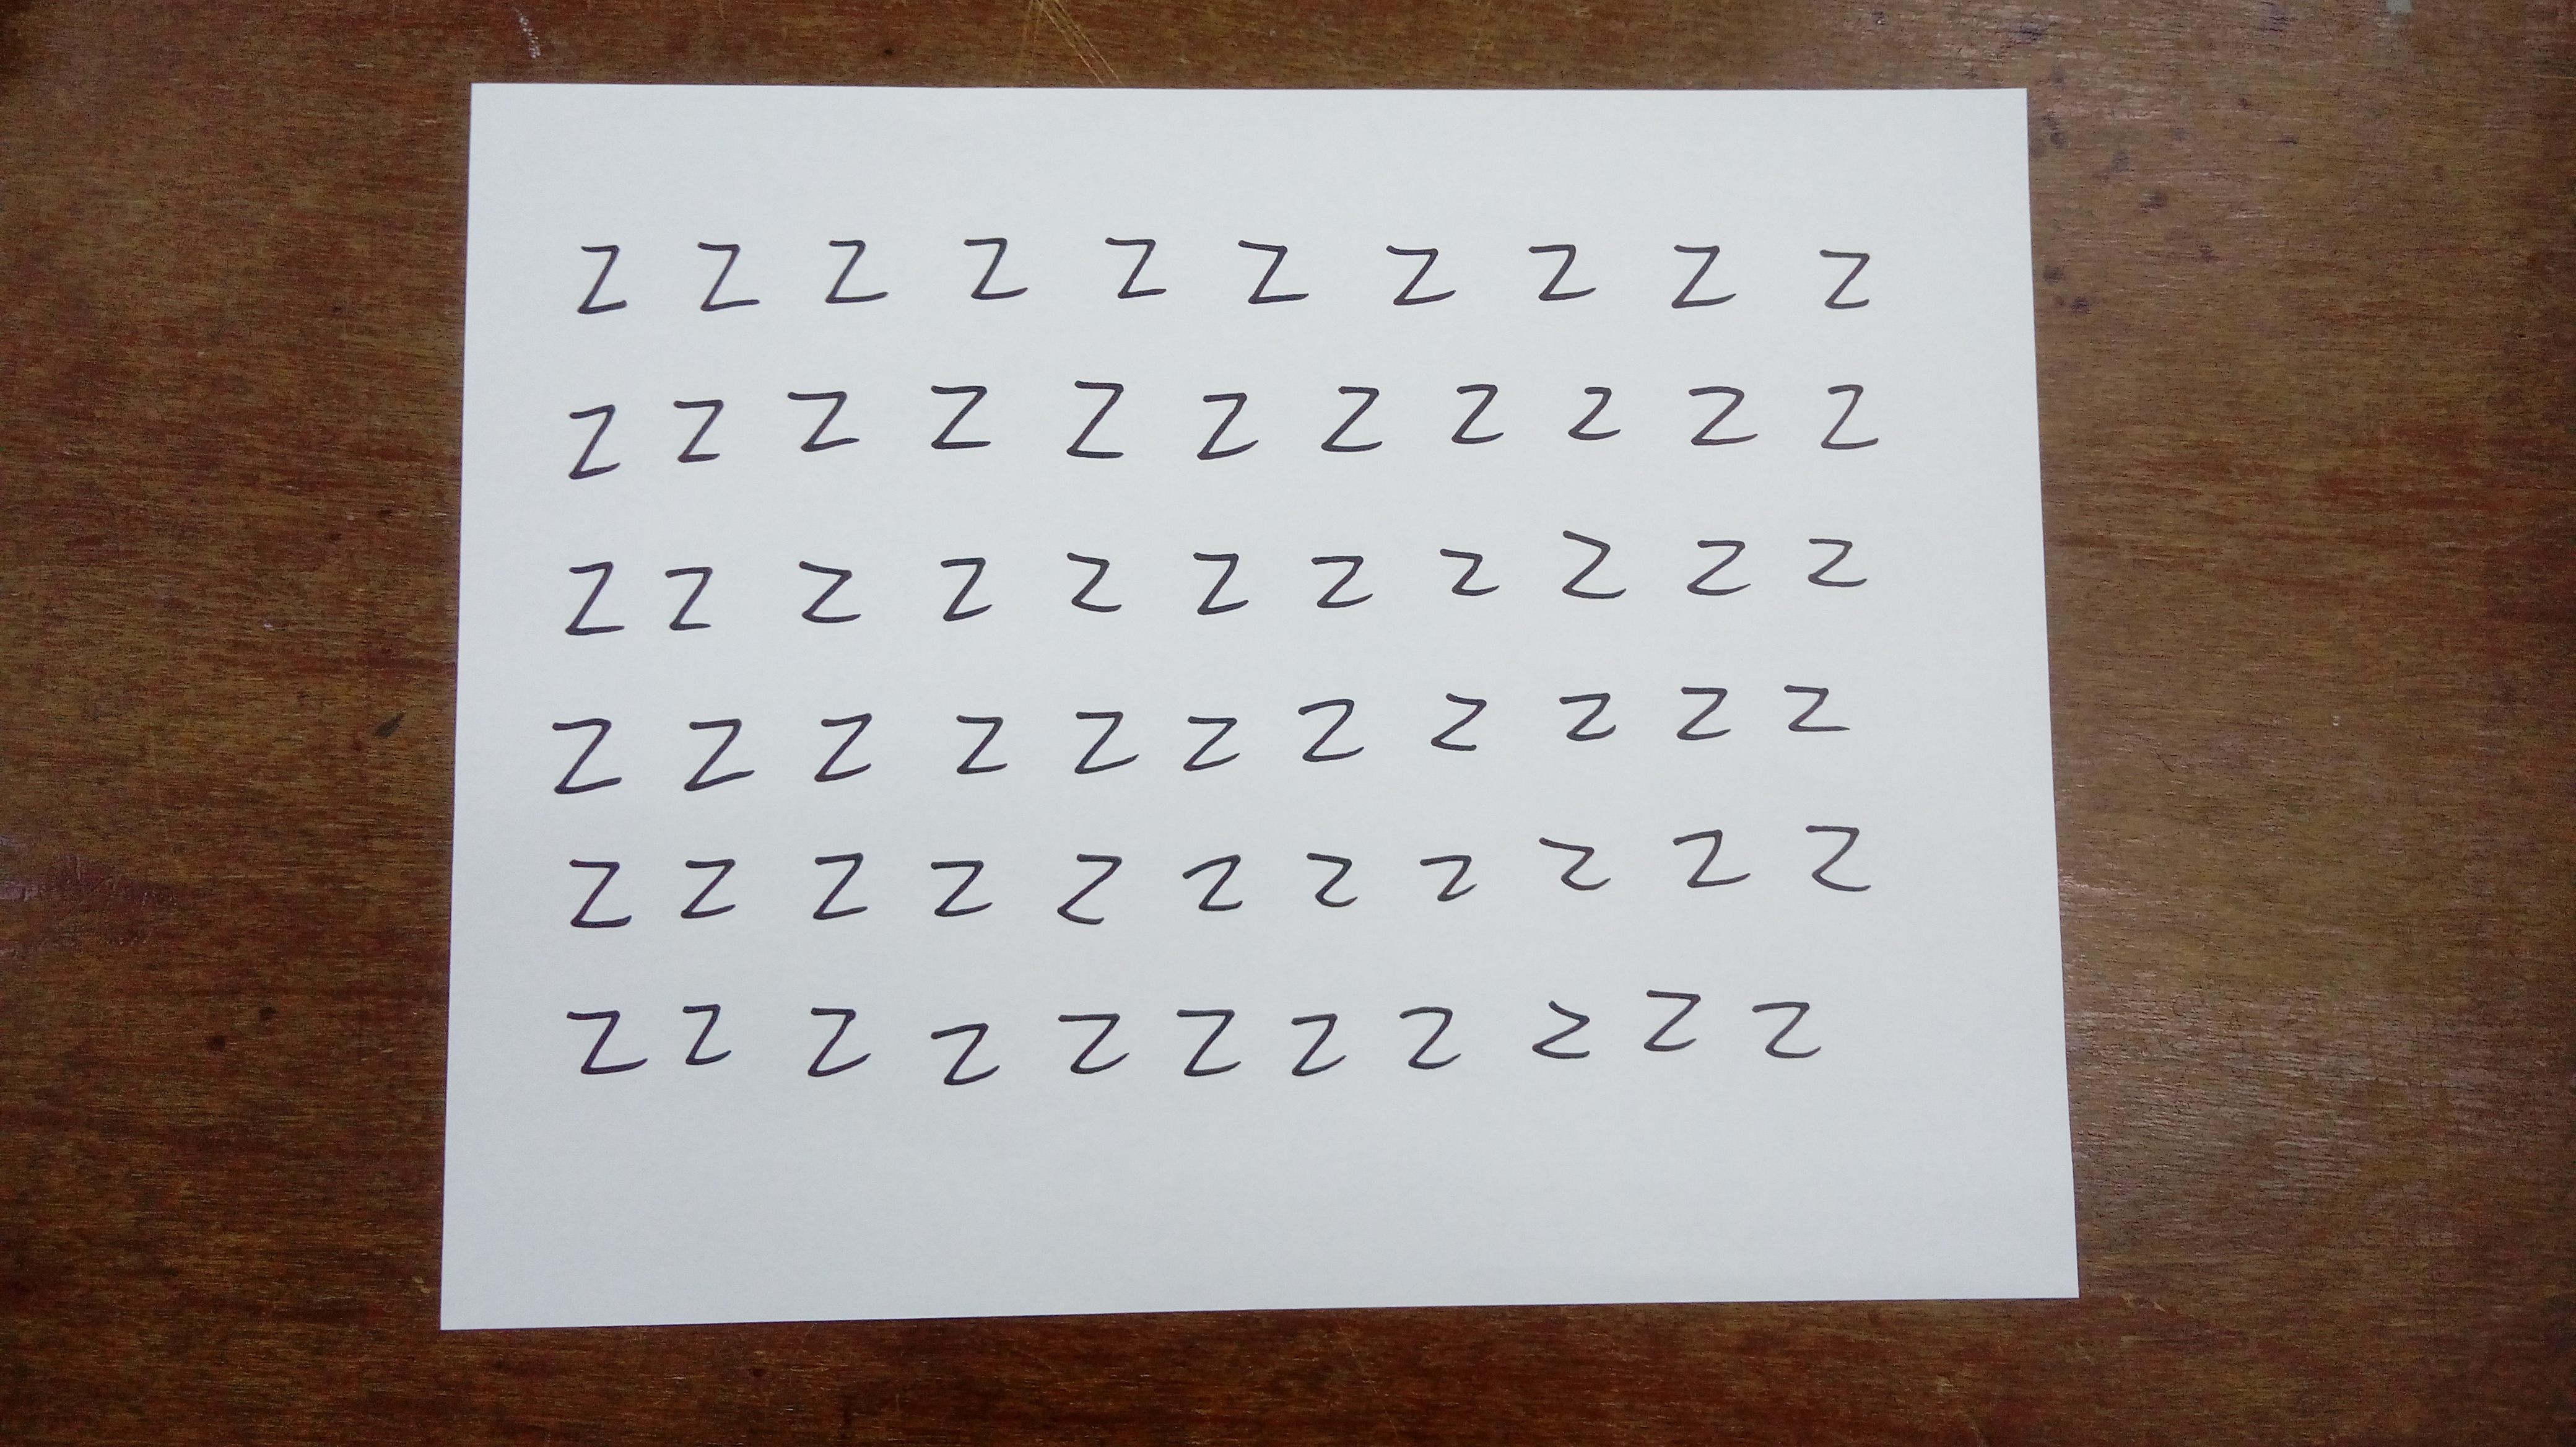 Z Z Z Z Z Z Z Z Z Z
Z Z Z Z Z Z Z Z Z Z Z
Z Z Z Z Z Z Z Z Z Z Z
Z Z Z Z Z Z Z Z Z Z Z
Z Z Z Z Z Z Z Z Z Z Z
Z Z Z Z Z Z Z Z Z Z Z